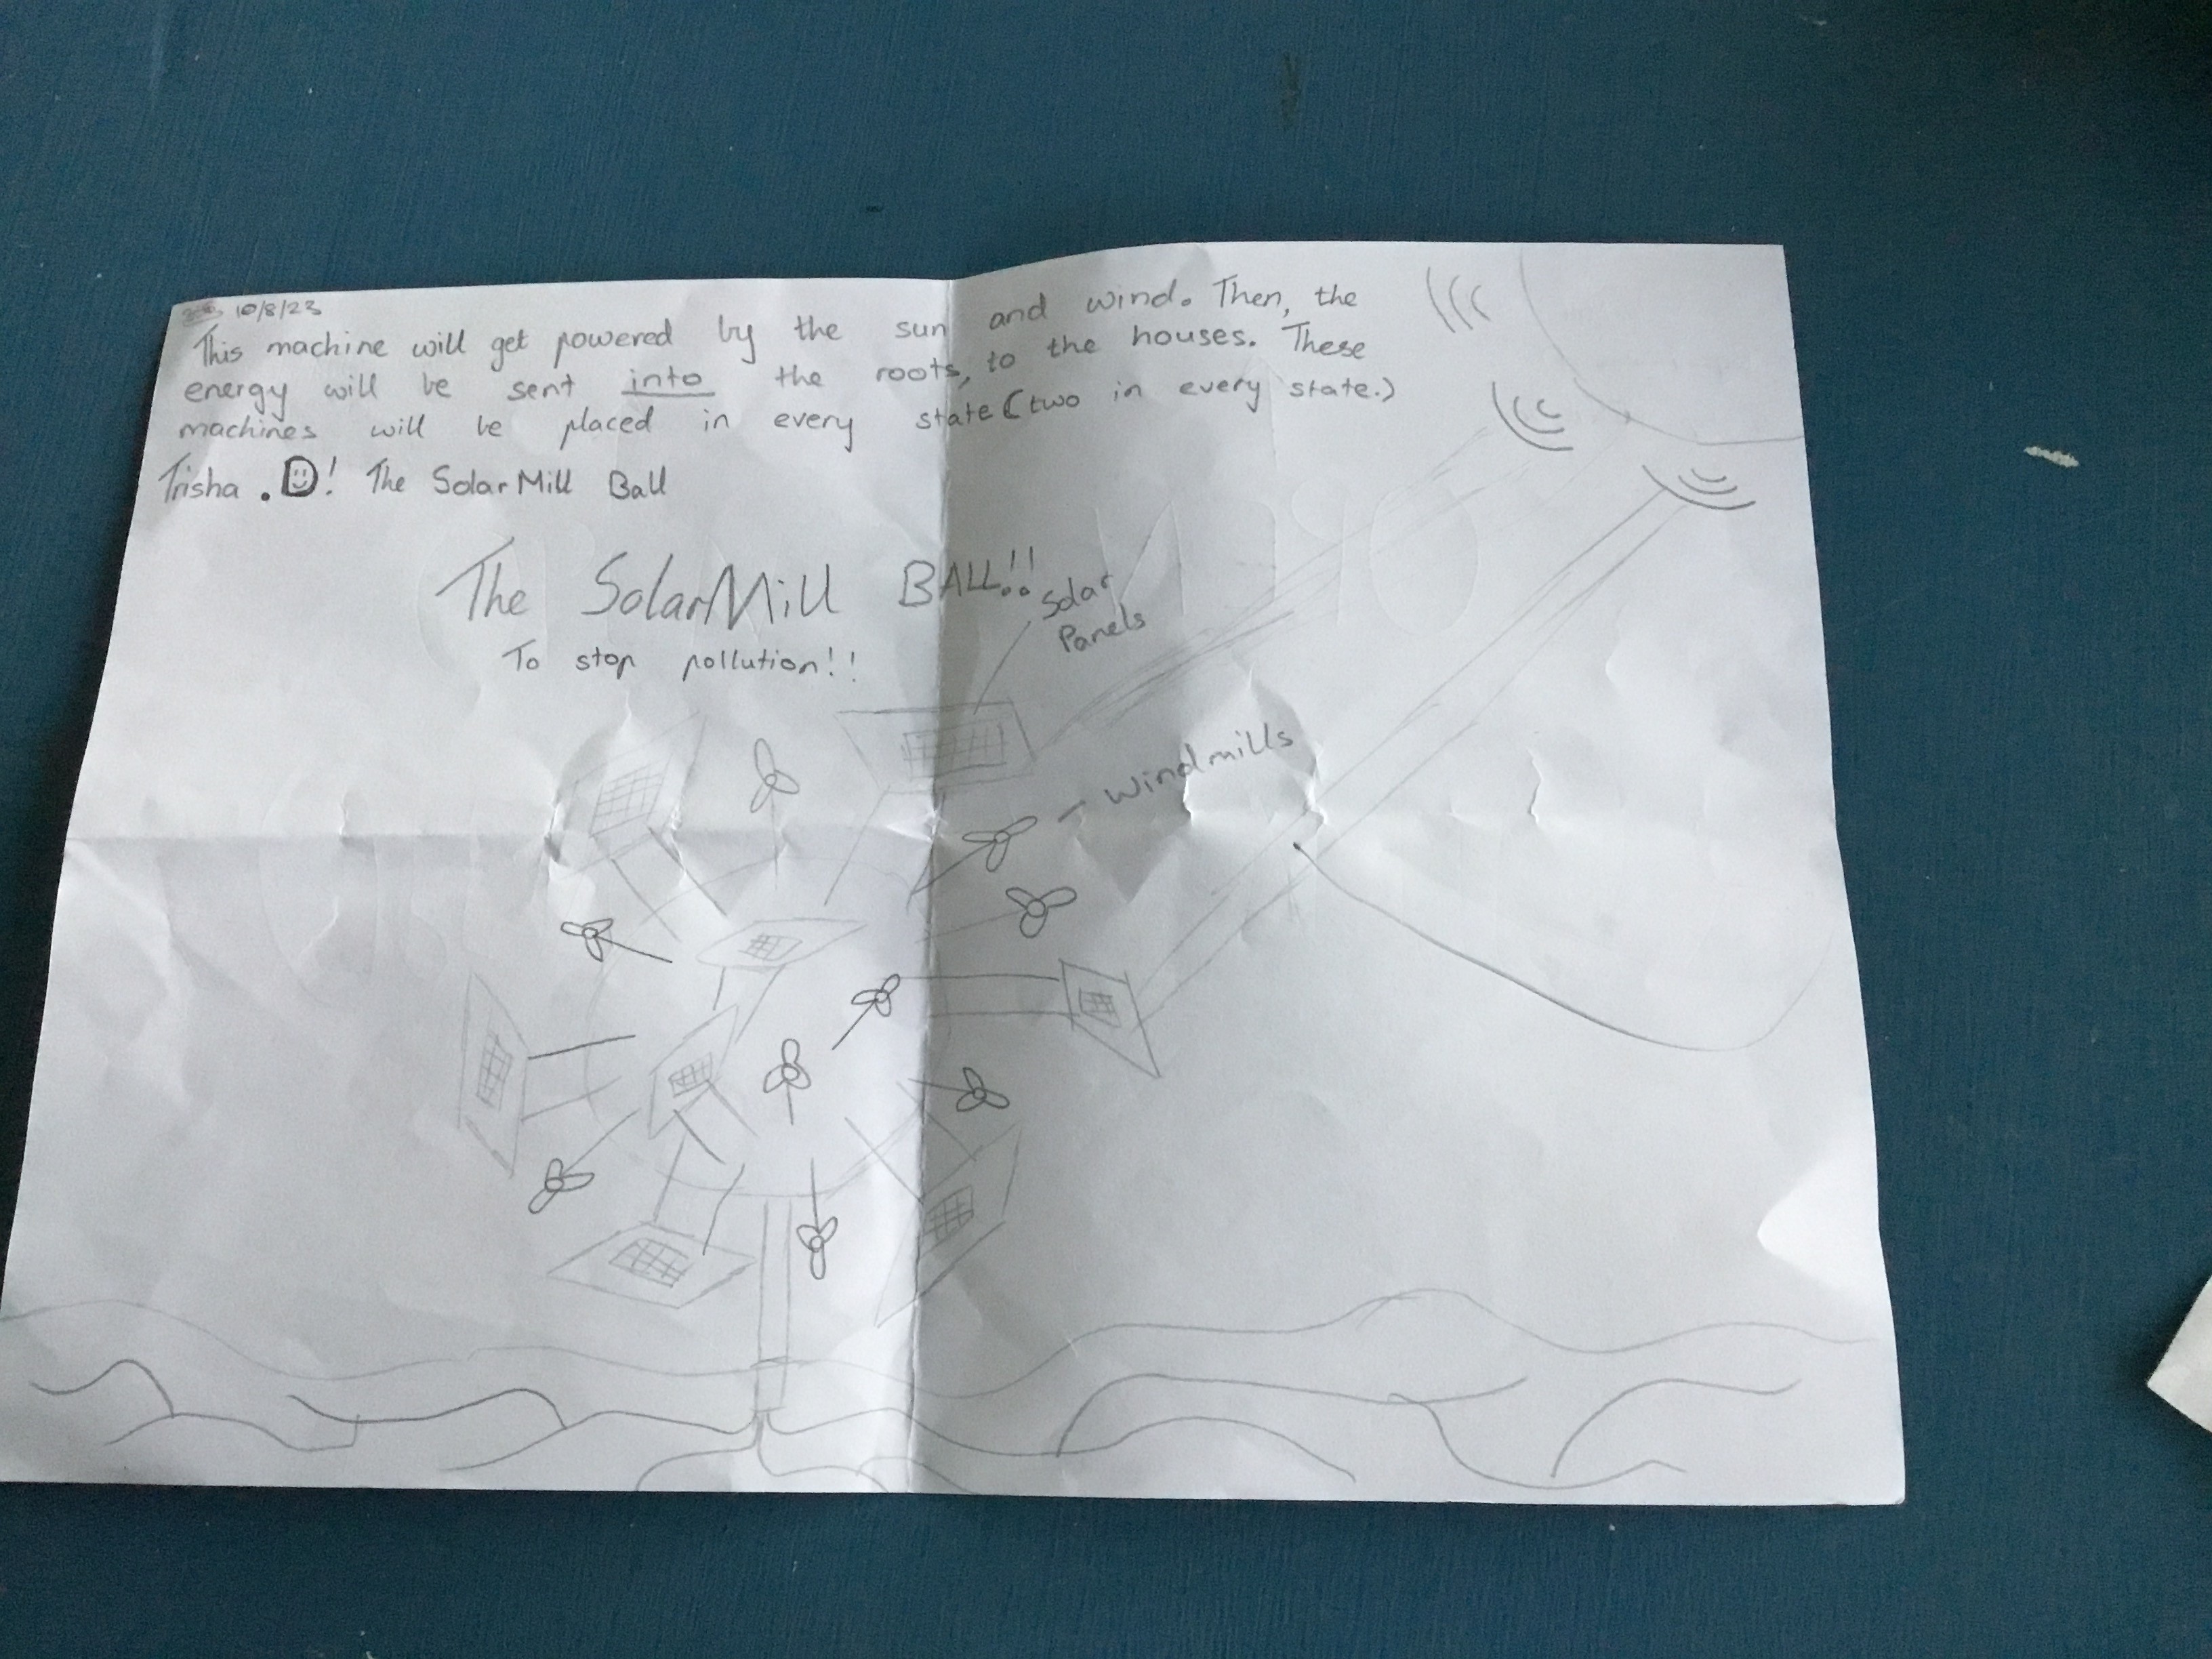 10/8/23
This machine will get powered by the sun and wind. Then, the
energy will be sent into the roots, to the houses. These
machines will be placed in every state (two in every state.)
Trisha .D! The SolarMill Ball
The SolarMill BALL!!
To stop pollution!!
Solar
Panels
Windmills